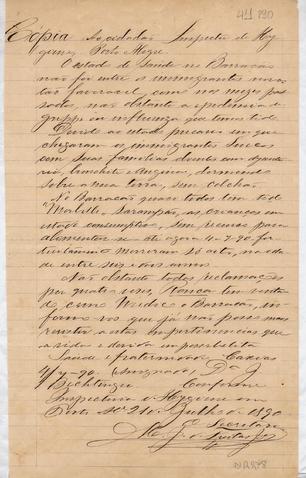 41 190
Copia Ao cidadão Inspector de Hy-
giene, Porto Alegre
O estado de Saúde no Barracão
não foi entre os immigrantes
tão favoravel, como nos mezes pas-
sados, não obstante a epidemia de
grippe ou influenza que temos tido
Devido ao estado precario em que
chegaram os immigrantes Suecos
com suas familias doentes com dysente-
ria, bronchite e anginas, dormindo
sobre a nua terra, sem colchão.
No Barracão quasi todos tem tido
"Morbilli", Sarampão, as crianças em
estado consumptivo, sem meios para
alimentar-se até agora 4-7-90 fo-
ram morreram oito, na eda-
de entre seis annos.
Não obstante todas reclamações
por quatro vezes, Nunca tem
como Medico o Barracão, in-
formo-vos que já não posso mais
resistir a estas impertinencias que
a vida e devido impossibilita
Saude e fraternidade Caxias
4/7-90, (assignado) Dr. J
Bechtinger Conforme
Inspectoria d'Hygiene em
Porto 21 de Julho de 1890
O Secretario